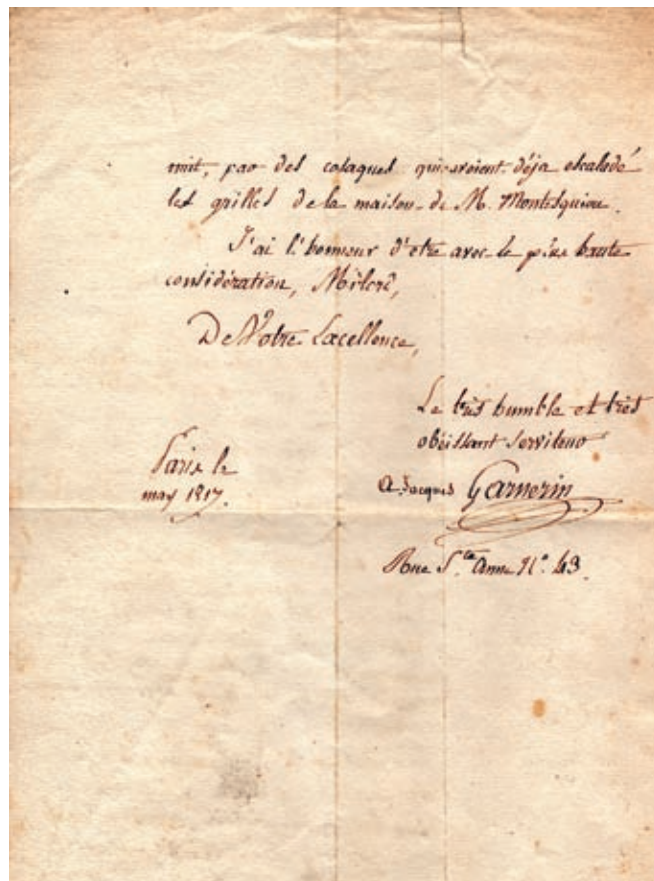 mit, par des cosaques qui avoient déja escaladé
les grilles de la maison de M. Montesquiou.
J'ai l'honneur d'etre avec la plus haute
considération, Milord,
De Votre Excellence,
Le très humble et très
obéissant serviteur
Paris le
may 1817.
A. Jacques Garnerin
Rue S.te Anne N.o 43.